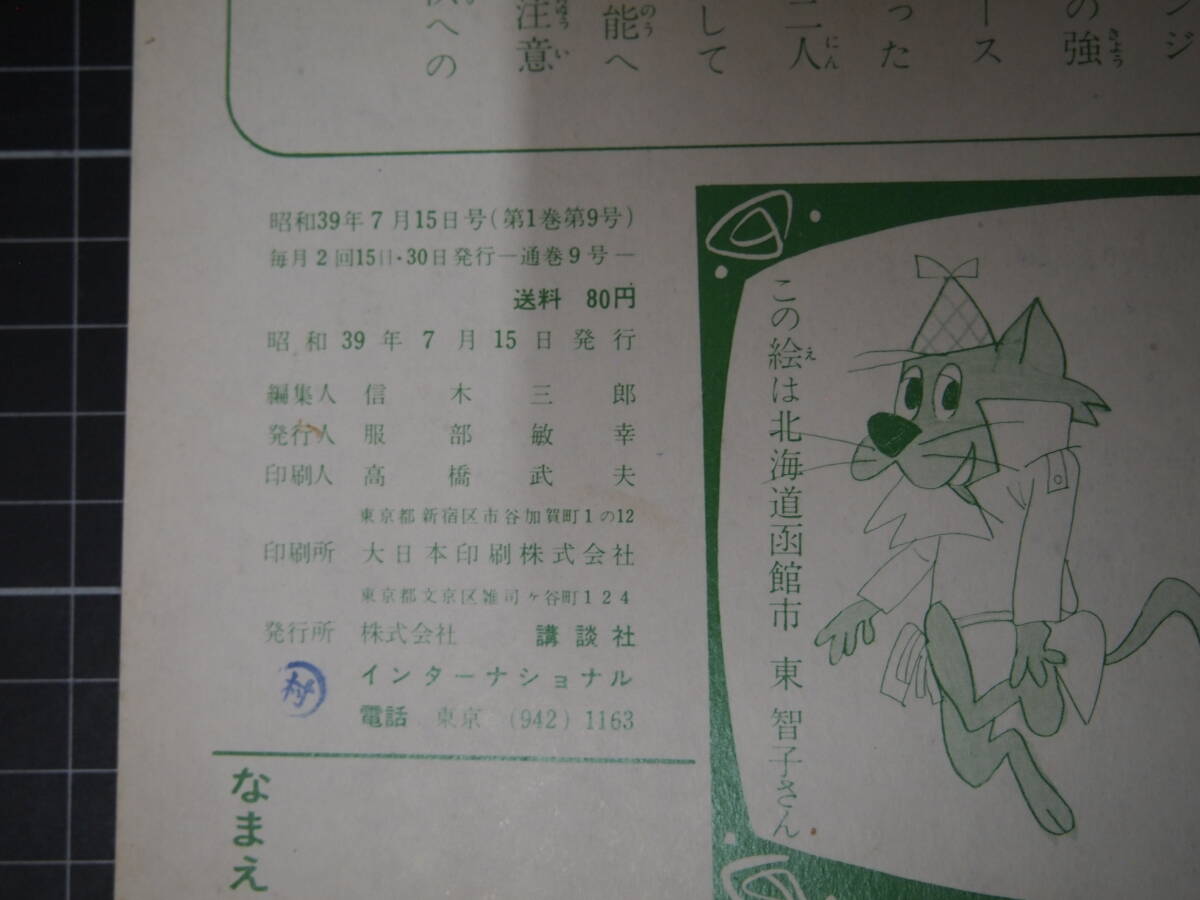 ンジ
の強
きょう
ース
った
二人
にん
して
能へ
のう
注意
ちゅうい
への
昭和39年7月15日号(第1巻第9号)
毎月2回15日・30日発行―通巻9号―
送料 80円
昭和39年7月15日発行
編集人 信木三郎
発行人 服部敏幸
印刷人 高橋武夫
東京都新宿区市谷加賀町1の12
印刷所 大日本印刷株式会社
東京都文京区雑司ヶ谷町124
発行所 株式会社 講談社
インターナショナル
電話 東京 (942) 1163
なまえ
この絵は北海道函館市 東 智子さん
え